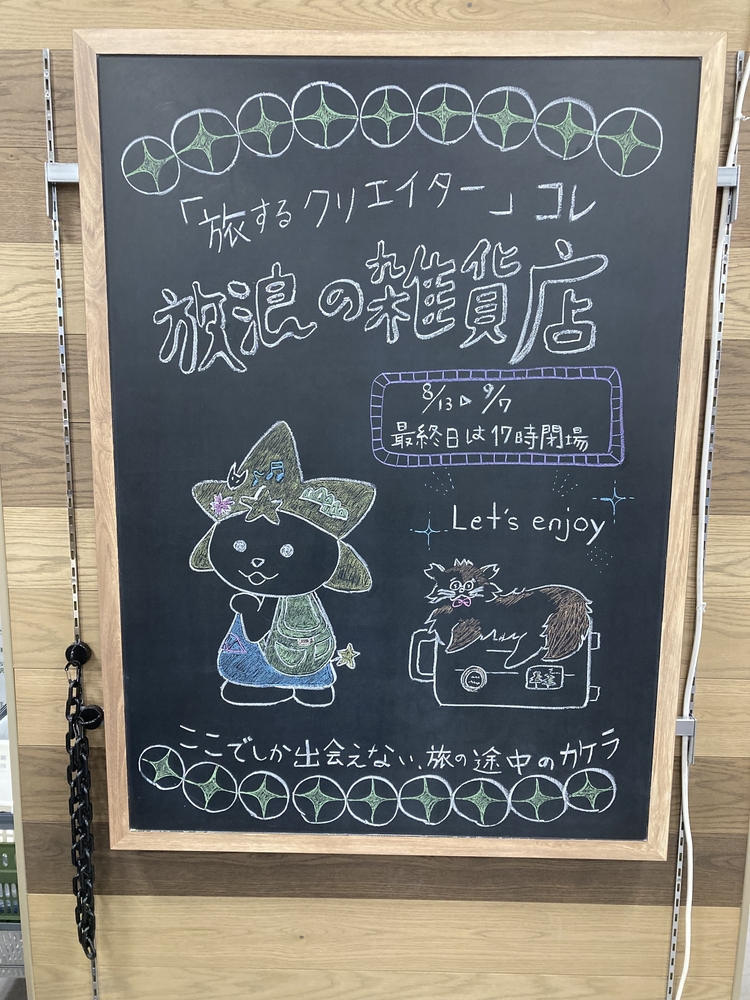 「旅するクリエイター」コレ
放浪の雑貨店
8/13▷9/7
最終日は17時閉場
Let's enjoy
ここでしか出会えない、旅の途中のカケラ